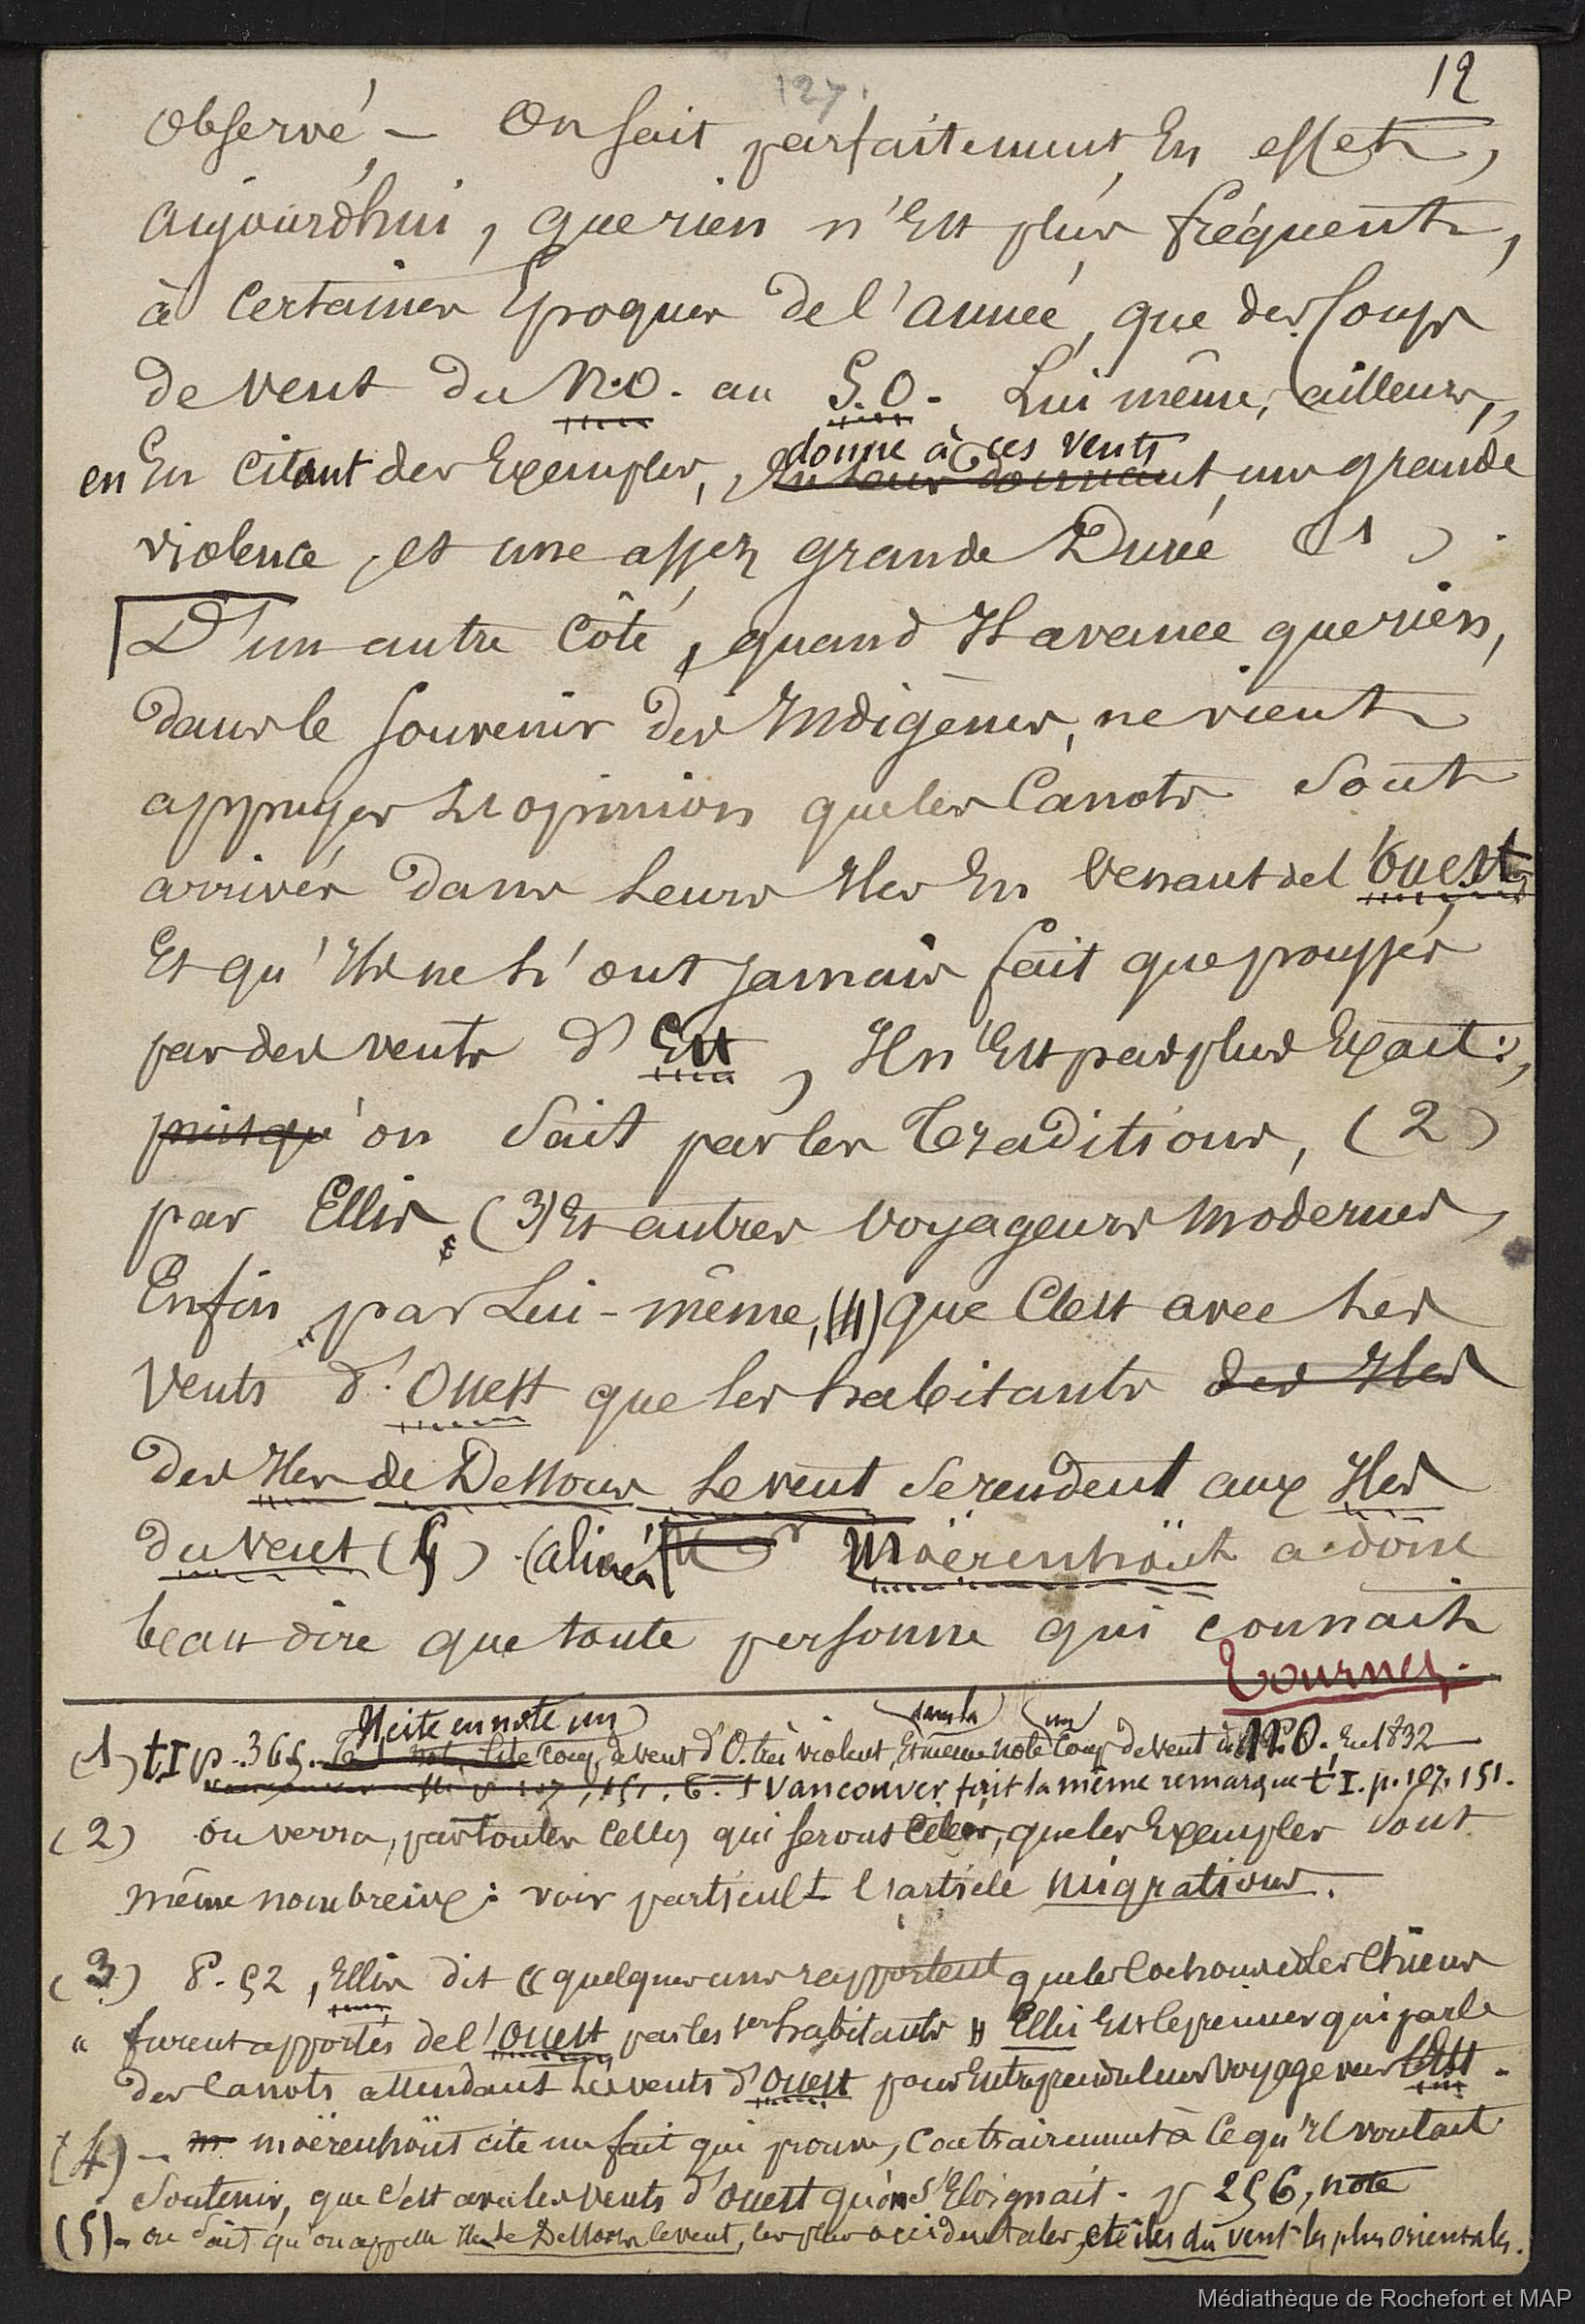 127.
12
Observé, — On sait parfaitement, En effet,
aujourd'hui, que rien n'Est plus fréquent,
à Certaines Époques de l'année, que des Coups
de vent du N.O. au S.O. Lui même, ailleurs,
donne à ces vents
en En citant des Exemples, En leur donnant une grande
violence, et une assez grande Durée (1).
D'un autre Côté, quand Il avance que rien,
dans le souvenir des Indigènes, ne vient
appuyer L'opinion que les Canots sont
arrivés dans Leurs Iles En venant de l'Ouest
Et qu'Ils ne L'ont jamais fait que poussés
par des vents d'Est, Il n'Est pas plus Exact:
puisqu'on sait par les Traditions, (2)
par Ellis (3) Et autres voyageurs modernes,
Enfin par Lui-même, (4) que C'est avec Les
Vents d'Ouest que Les habitants des Iles
des Iles de Dessous Le vent se rendent aux Iles
du Vent (5) (alinéa) Moërenhoüt a donc
beau dire que toute personne qui connait
Tournez.
Il cite en note un dans la un
(1) t I p. 365. coup de vent d'O. très violent, Et même note Coup de vent du N.O. En 1832
Vancouver fait la même remarque t I. p. 107. 151.
(2) on verra, par toutes Celles qui seront Citées, que les Exemples sont
même nombreux: voir particult L'article migrations.
(3) P. 52, Ellis dit « quelques uns rapportent que les Cochons et Les Chiens
« furent apportés de l'Ouest par les 1ers habitants » Ellis Est le premier qui parle
des Canots attendant Les vents d'Ouest pour Entreprendre leur voyage vers l'Est.
(4) — m moërenhoüt cite un fait qui prouve, Contrairement à Ce qu'Il voulait
soutenir, que C'est avec les vents d'Ouest qu'on s'Eloignait. p 256, note
(5) — on sait qu'on appelle Iles de Dessous le vent, les plus occidentales, et îles du vent les plus orientales.
Médiathèque de Rochefort et MAP